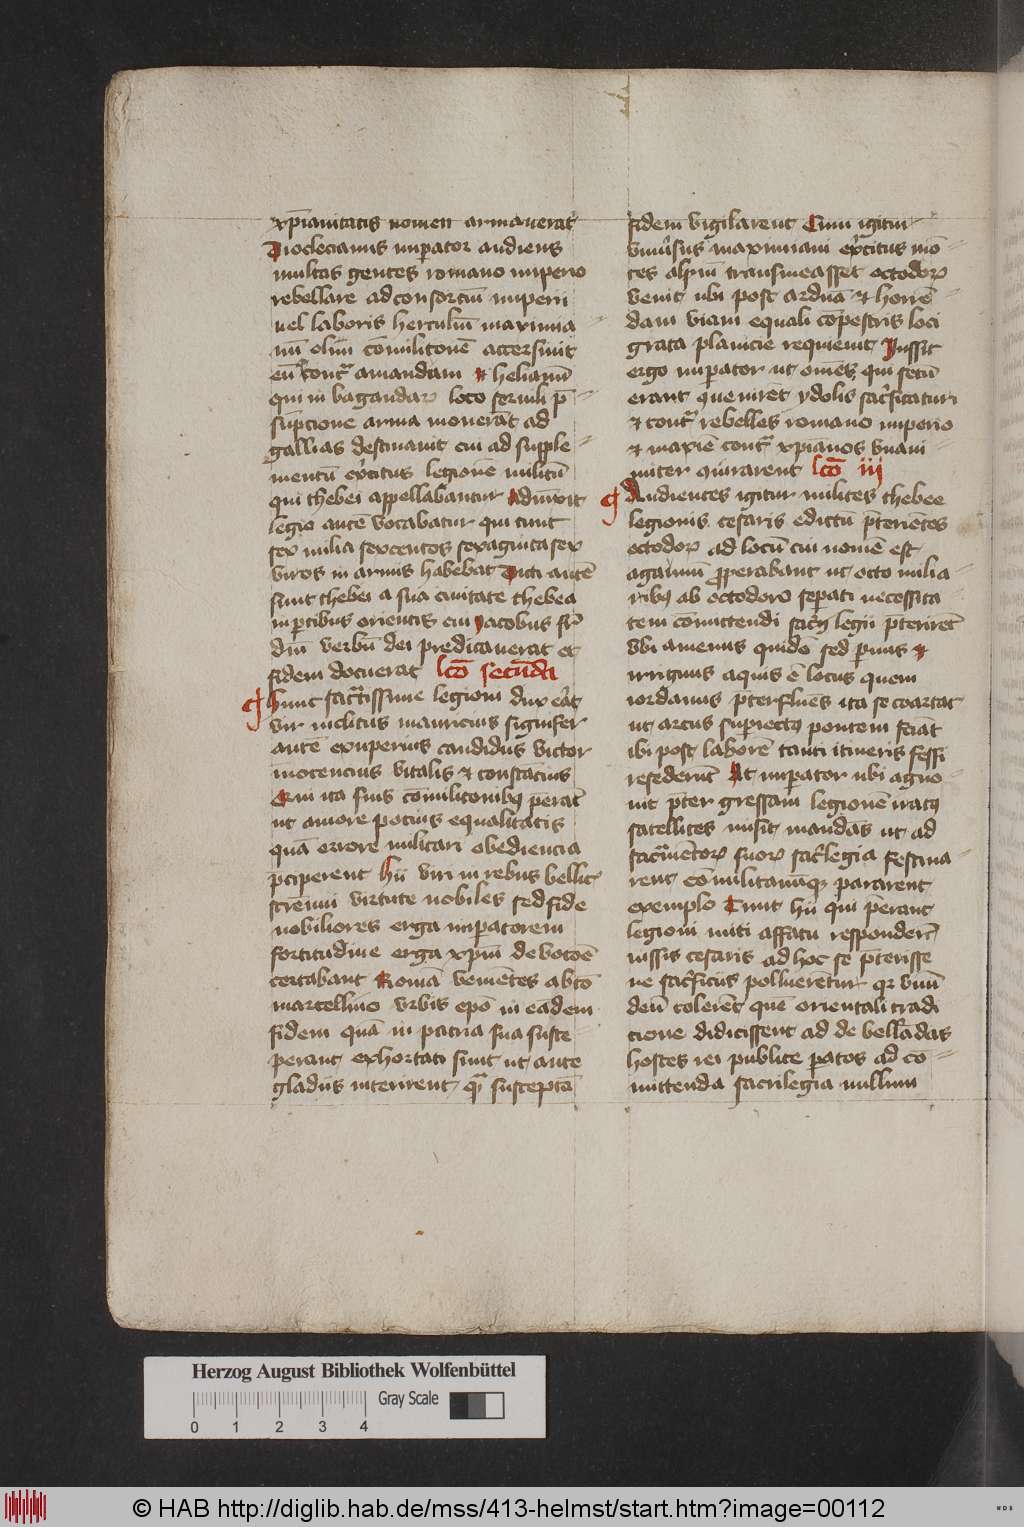 xp̄ianitatis nomen armauerat
Dioclecianus imp̄ator audiens
multas gentes romano imperio
rebellare ad consorciū imperii
uel laboris herculiū maximia
nū olim cōmilitonē accersiuit
eū contra amandum et helianū
qui in bagaudarꝝ loco seruili p̄
sūpcione arma mouerāt ad
gallias destinauit cui ad supple
mentū exercitus legionē militū
qui thebei appellabantur adiūxit
legio autē vocabatur qui tunc
sex milia sexcentos sexaginta sex
viros in armis habebat Dicti autē
sunt thebei a sua ciuitate thebea
in ꝑtibus orientis cui iacobus fr̄
dn̄i verbū dei predicauerat et
fidem docuerat lcō secūda
Hunc sacratissime legioni dux erāt
vir inclitus mauricius signifer
autē exuperius candidus victor
inocencius vitalis et constācius
Qui ita suis cōmilitonibꝰ p̄erāt
ut amore potius equalitatis
quā errore militari obediencia
p̄ciperent hii viri in rebus bellicis
strēnui virtute nobiles sed fide
nobiliores erga imp̄atorem
fortitudine erga xp̄m deuocōe
certabant Romā veniētes ab to
marcellino vrbis ep̄o in eādem
fidem quā in patria sua susce
perant exhortati sunt ut ante
gladiis interirent quam susceptā
fidem vigilarent Cum igitur
vniuersus maximiani exercitus mō
tes alpiū transmeasset octodorꝝ
venit ubi post arduā et horrē
dam viam equali cāpestris loci
grata planicie requieuit Iussit
ergo imp̄ator ut om̄es qui secū
erant quenirēt ydolis sacrificaturi
et contra rebelles romano imperio
et maxīe contra xp̄ianos vnani
miter iurarent lcō iij
Audientes igitur milites thebee
legionis cesaris edictū p̄tereūtes
octodorꝝ ad locū cui nomē est
agaunū ꝓperabant ut octo milia
ribꝰ ab octodoro seꝑati necessita
tem cōmittendi sacrilegii p̄terirēt
vbi amenus quidē sed ꝑuus et
irriguus aquis ē locus quem
iordanus p̄terfluēs ita se coartat
ut arcus suꝑiectꝰ pontem faciāt
ibi post laborē tanti itineris fessi
resederūt At imp̄ator ubi agno
uit p̄ter gressam legionē iratꝰ
satellites misit mandās ut ad
sacramētorꝝ suorꝝ sacrilegia festina
rent cōmilitanūqꝫ pararent
exemplo Tunc hii qui p̄erant
legioni miti affatu responderūt
iussis cesaris ad hoc se p̄terisse
ne sacrificiis polluerētur qꝛ vnū
deū colerēt quē orientali tradi
cione didicissent ad de bellādas
hostes rei publice paratos ad cō
mittenda sacrilegia nullum
Herzog August Bibliothek Wolfenbüttel
Gray Scale
0 1 2 3 4
© HAB http://diglib.hab.de/mss/413-helmst/start.htm?image=00112